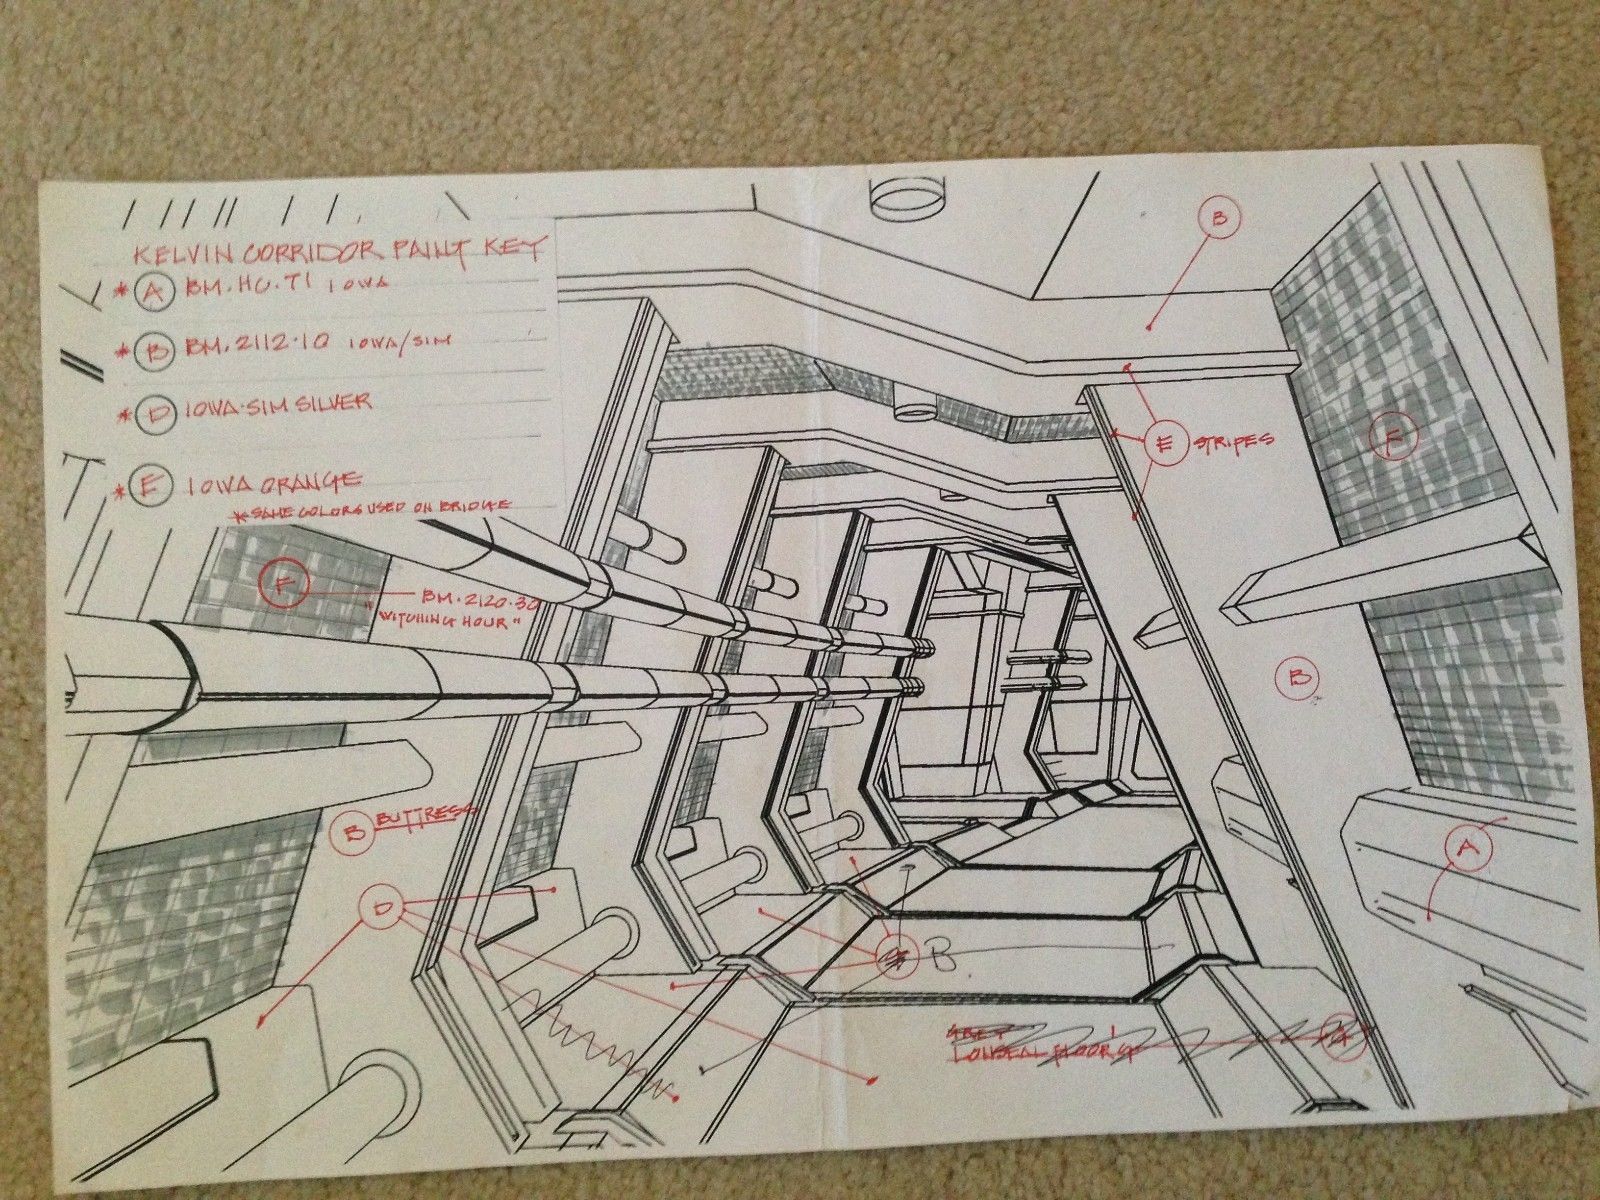 KELVIN CORRIDOR PAINT KEY
* A BM. HC. 71 IOWA
* B BM. 2112.10 IOWA/SIM
* D IOWA-SIM SILVER
* E IOWA ORANGE
* SAME COLORS USED ON BRIDGE
F BM. 2120.30
"WITCHING HOUR"
B
E STRIPES
F
B
B BUTTRESS
A
D
B
GREY
LONSEAL FLOOR'G